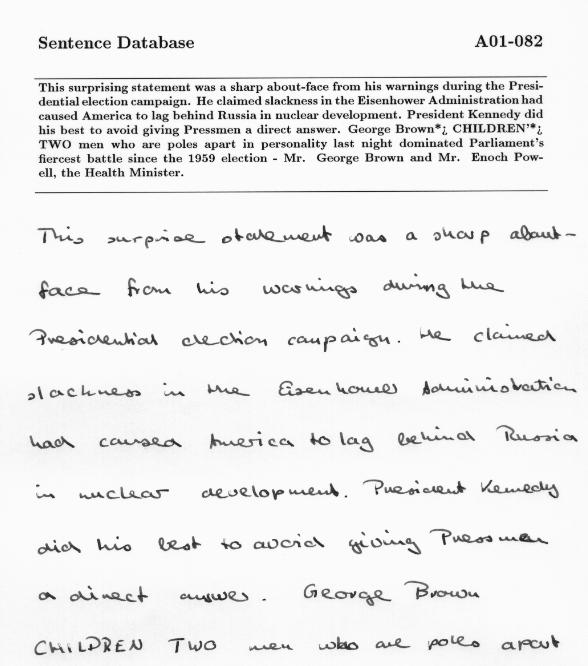 Sentence Database A01-082
This surprising statement was a sharp about-face from his warnings during the Presi-
dential election campaign. He claimed slackness in the Eisenhower Administration had
caused America to lag behind Russia in nuclear development. President Kennedy did
his best to avoid giving Pressmen a direct answer. George Brown*¿ CHILDREN'*¿
TWO men who are poles apart in personality last night dominated Parliament's
fiercest battle since the 1959 election - Mr. George Brown and Mr. Enoch Pow-
ell, the Health Minister.
This surprise statement was a sharp about-
face from his warnings during the
Presidential election campaign. He claimed
slackness in the Eisenhower Administration
had caused America to lag behind Russia
in nuclear development. President Kennedy
did his best to avoid giving Pressmen
a direct answer. George Brown
CHILDREN TWO men who are poles apart